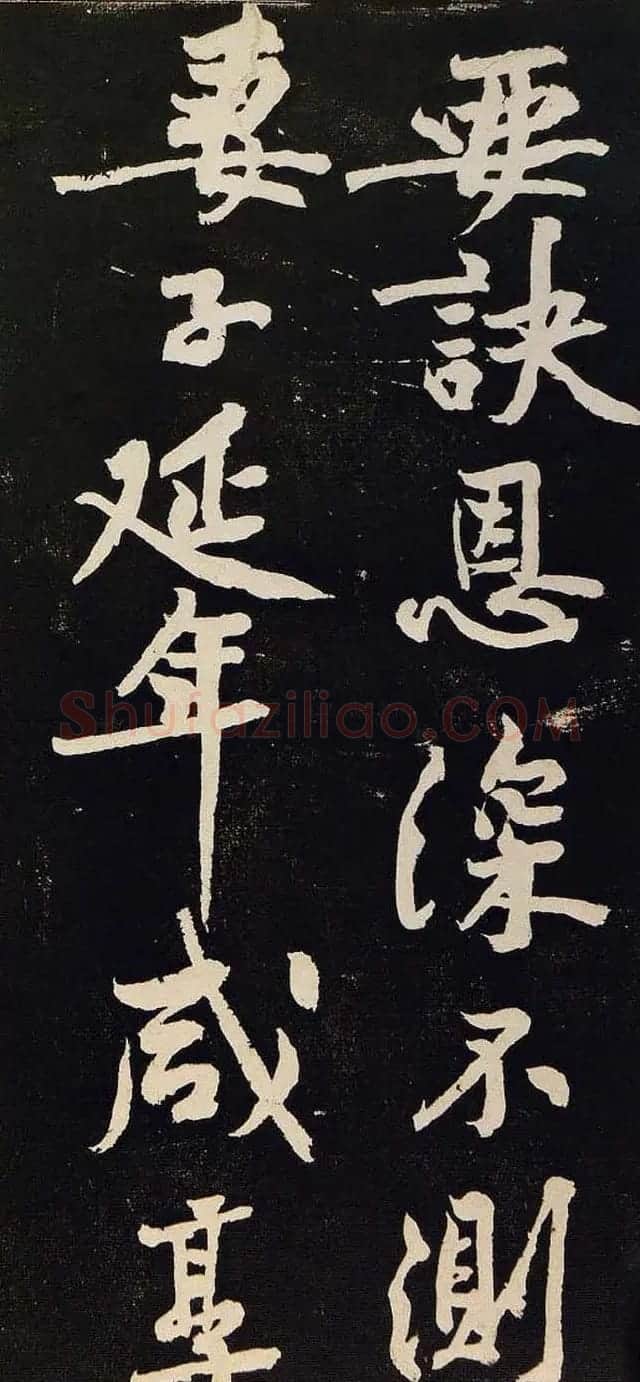 要訣恩深不測
妻子延年咸享
Shufaziliao.COM